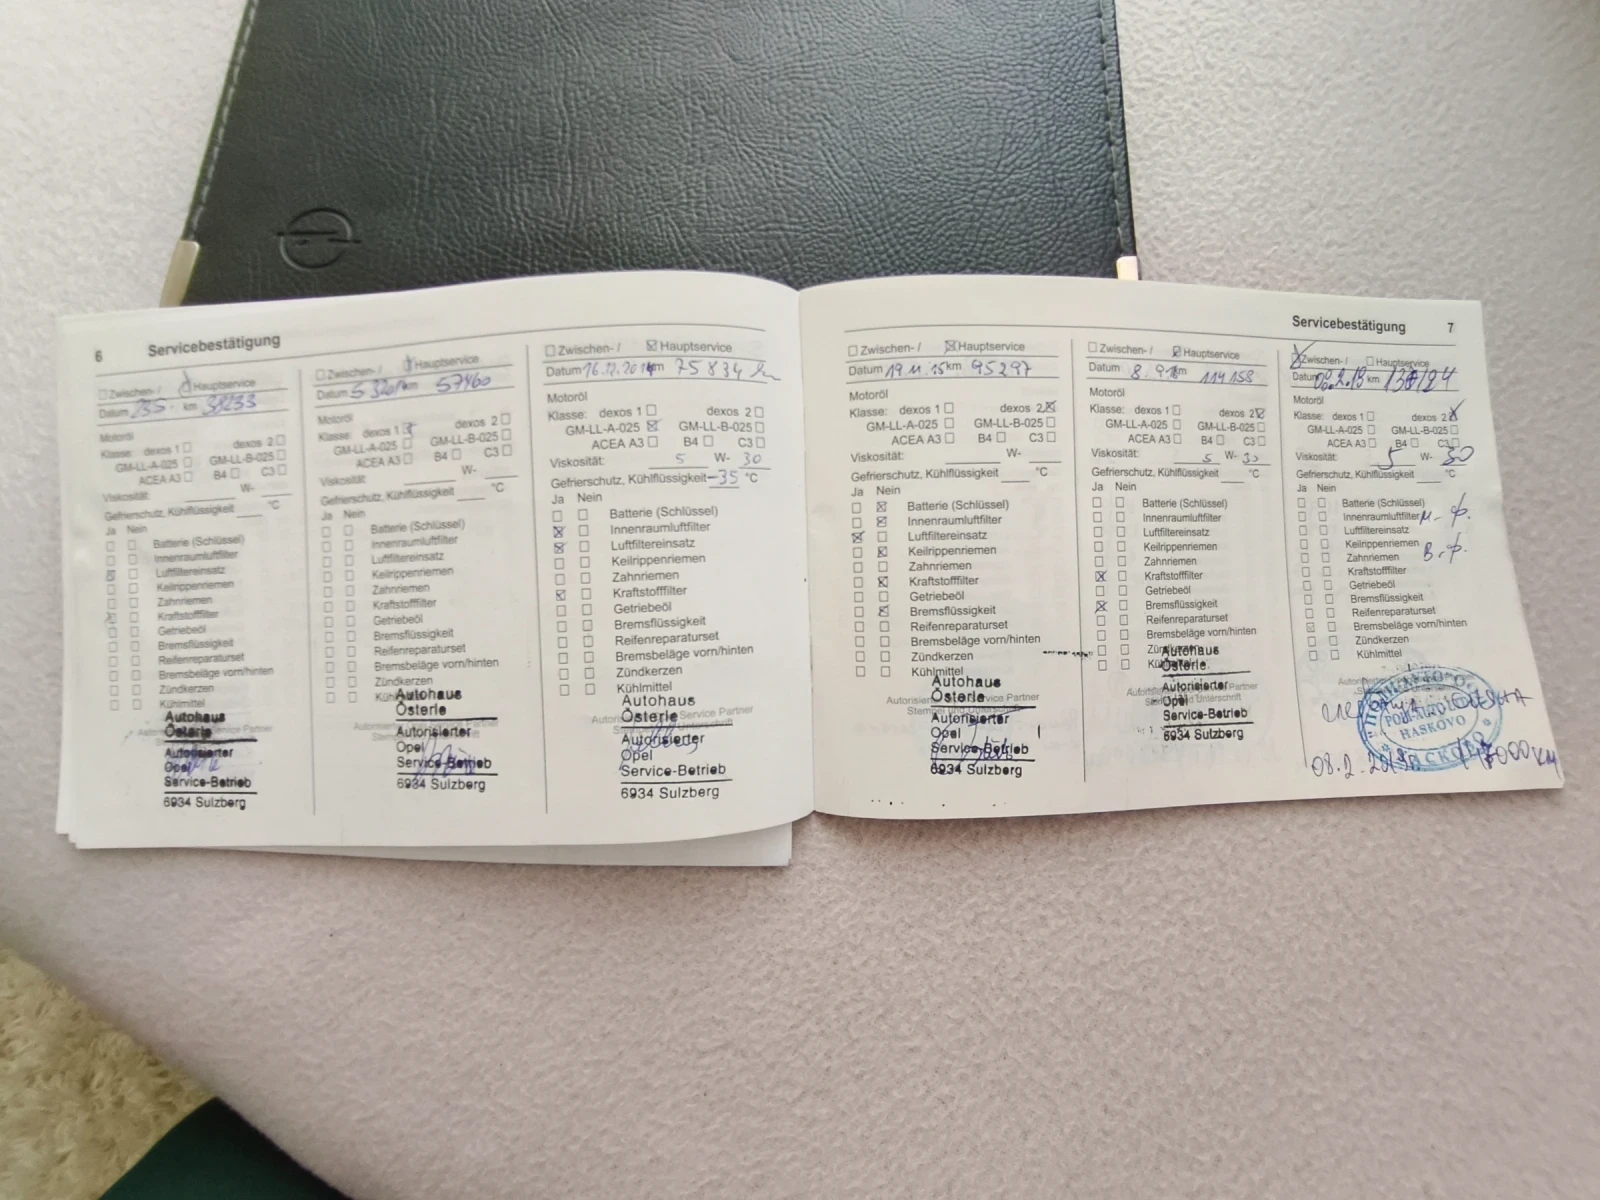 6 Servicebestätigung
Zwischen- / Hauptservice
Datum km 38233
Motoröl
Klasse: dexos 1 dexos 2
GM-LL-A-025 GM-LL-B-025
ACEA A3 B4 C3
Viskosität: W-
Gefrierschutz, Kühlflüssigkeit °C
Ja Nein
Batterie (Schlüssel)
Innenraumluftfilter
Luftfiltereinsatz
Keilrippenriemen
Zahnriemen
Kraftstofffilter
Getriebeöl
Bremsflüssigkeit
Reifenreparaturset
Bremsbeläge vorn/hinten
Zündkerzen
Kühlmittel
Autohaus
Österle
Autorisierter
Opel
Service-Betrieb
6934 Sulzberg
Zwischen- / Hauptservice
Datum km 57460
Motoröl
Klasse: dexos 1 dexos 2
GM-LL-A-025 GM-LL-B-025
ACEA A3 B4 C3
Viskosität: W-
Gefrierschutz, Kühlflüssigkeit °C
Ja Nein
Batterie (Schlüssel)
Innenraumluftfilter
Luftfiltereinsatz
Keilrippenriemen
Zahnriemen
Kraftstofffilter
Getriebeöl
Bremsflüssigkeit
Reifenreparaturset
Bremsbeläge vorn/hinten
Zündkerzen
Autohaus
Österle
Autorisierter
Opel
Service-Betrieb
6934 Sulzberg
Zwischen- / Hauptservice
Datum 16.12.2014 km 75834 km
Motoröl
Klasse: dexos 1 dexos 2
GM-LL-A-025 GM-LL-B-025
ACEA A3 B4 C3
Viskosität: 5 W- 30
Gefrierschutz, Kühlflüssigkeit -35 °C
Ja Nein
Batterie (Schlüssel)
Innenraumluftfilter
Luftfiltereinsatz
Keilrippenriemen
Zahnriemen
Kraftstofffilter
Getriebeöl
Bremsflüssigkeit
Reifenreparaturset
Bremsbeläge vorn/hinten
Zündkerzen
Kühlmittel
Autohaus
Österle
Autorisierter
Opel
Service-Betrieb
6934 Sulzberg
Servicebestätigung 7
Zwischen- / Hauptservice
Datum 19.11.15 km 95297
Motoröl
Klasse: dexos 1 dexos 2
GM-LL-A-025 GM-LL-B-025
ACEA A3 B4 C3
Viskosität: W-
Gefrierschutz, Kühlflüssigkeit °C
Ja Nein
Batterie (Schlüssel)
Innenraumluftfilter
Luftfiltereinsatz
Keilrippenriemen
Zahnriemen
Kraftstofffilter
Getriebeöl
Bremsflüssigkeit
Reifenreparaturset
Bremsbeläge vorn/hinten
Zündkerzen
Kühlmittel
Autohaus
Österle
Autorisierter
Opel
Service-Betrieb
6934 Sulzberg
Zwischen- / Hauptservice
Datum km 114158
Motoröl
Klasse: dexos 1 dexos 2
GM-LL-A-025 GM-LL-B-025
ACEA A3 B4 C3
Viskosität: 5 W- 30
Gefrierschutz, Kühlflüssigkeit °C
Ja Nein
Batterie (Schlüssel)
Innenraumluftfilter
Luftfiltereinsatz
Keilrippenriemen
Zahnriemen
Kraftstofffilter
Getriebeöl
Bremsflüssigkeit
Reifenreparaturset
Bremsbeläge vorn/hinten
Autohaus
Österle
Autorisierter
Opel
Service-Betrieb
6934 Sulzberg
Zwischen- / Hauptservice
Datum km
Motoröl
Klasse: dexos 1 dexos 2
GM-LL-A-025 GM-LL-B-025
ACEA A3 B4 C3
Viskosität: 5 W- 30
Gefrierschutz, Kühlflüssigkeit °C
Ja Nein
Batterie (Schlüssel)
Innenraumluftfilter м-ф.
Luftfiltereinsatz
Keilrippenriemen В.ф.
Zahnriemen
Kraftstofffilter
Getriebeöl
Bremsflüssigkeit
Reifenreparaturset
Bremsbeläge vorn/hinten
Zündkerzen
Kühlmittel
HASKOVO